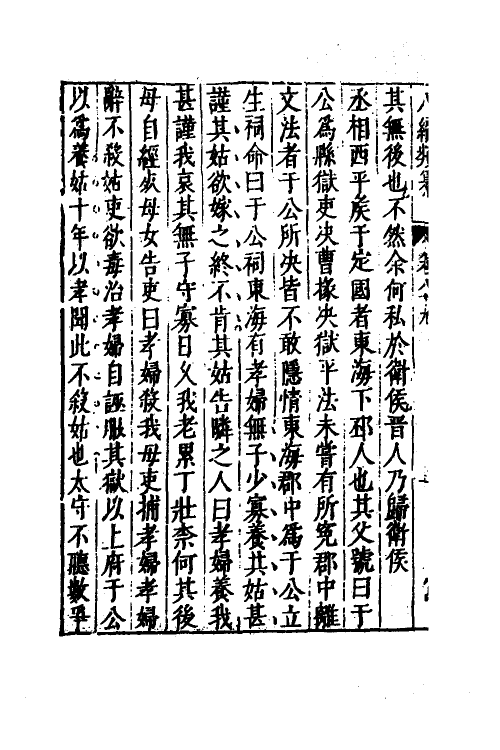 八編類纂 卷
其無後也不然余何私於衛侯晋人乃歸衛侯
丞相西平矦于定國者東海下邳人也其父號曰于
公爲縣獄吏决曹掾决獄平法未嘗有所寃郡中離
文法者于公所决皆不敢隱情東海郡中爲于公立
生祠命曰于公祠東海有孝婦無子少寡養其姑甚
謹其姑欲嫁之終不肯其姑告隣之人曰孝婦養我
甚謹我哀其無子守寡日乆我老累丁壯柰何其後
母自經死母女告吏曰孝婦殺我母吏捕孝婦孝婦
辭不殺姑吏欲毒治孝婦自誣服其獄以上府于公
以爲養姑十年以孝聞此不殺姑也太守不聽數爭